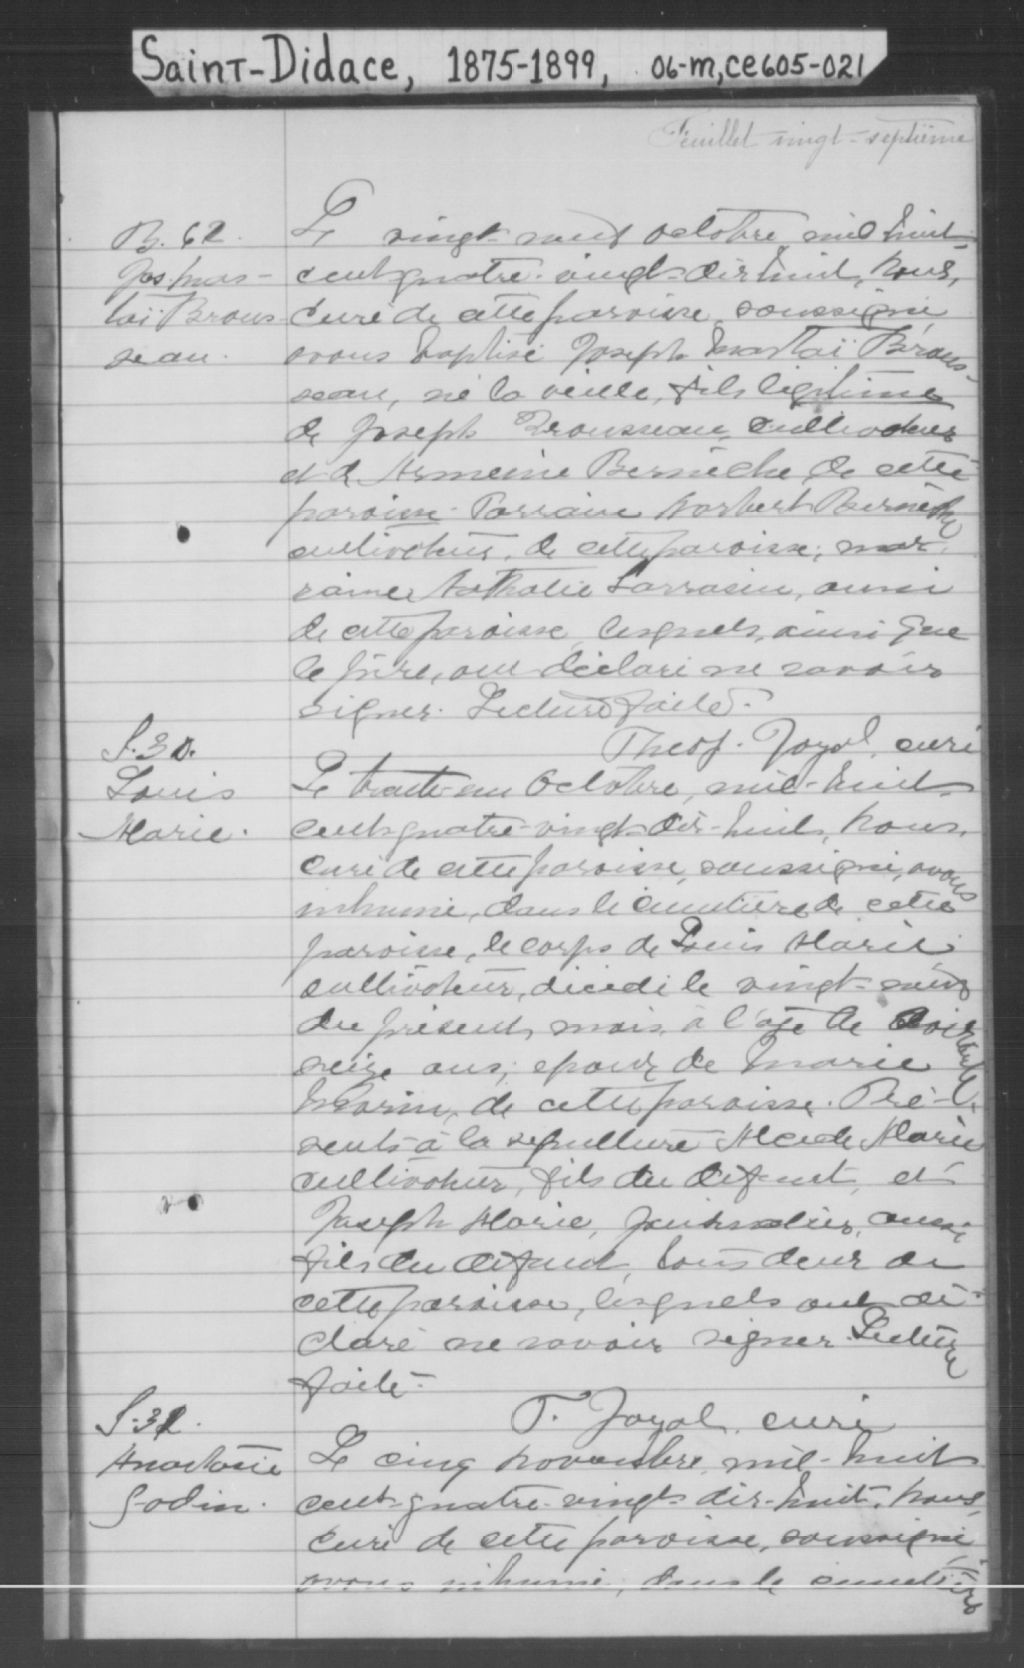 Saint-Didace, 1875-1899, 06-m,ce605-021
Feuillet vingt-septième
B. 62.
Jos. Mas-
taï Brous-
seau.
Le vingt-neuf octobre mil huit
cent quatre-vingt-dix huit, nous,
curé de cette paroisse, soussigné
avons baptisé Joseph Mastaï Brous-
seau, né la veille, fils légitime
de Joseph Brousseau, cultivateur
et d'Armeine Bernèche, de cette
paroisse. Parrain Norbert Bernèche
cultivateur, de cette paroisse; mar-
raine Nathalie Sarrasin, aussi
de cette paroisse, lesquels, ainsi que
le père, ont déclaré ne savoir
signer. Lecture faite.
Theof. Joyal, curé
S. 30.
Louis
Marie.
Le trente-un Octobre, mil-huit
cent-quatre-vingt-dix-huit, nous,
curé de cette paroisse, soussigné, avons
inhumé, dans le cimetière de cette
paroisse, le corps de Louis Marie
cultivateur, décédé le vingt-neuf
du présent mois, à l'age de soixante
seize ans, epoux de Marie
Marin, de cette paroisse. Pré-
sents à la sépulture Alcide Marie
cultivateur, fils du défunt, et
Joseph Marie, journalier, aussi
fils du défunt, tous deux de
cette paroisse, lesquels ont dé-
claré ne savoir signer. Lecture
faite.
T. Joyal, curé
S. 31.
Anastasie
Godin.
Le cinq novembre, mil-huit
cent-quatre-vingt-dix-huit, nous,
curé de cette paroisse, soussigné
avons inhumé, dans le cimetière